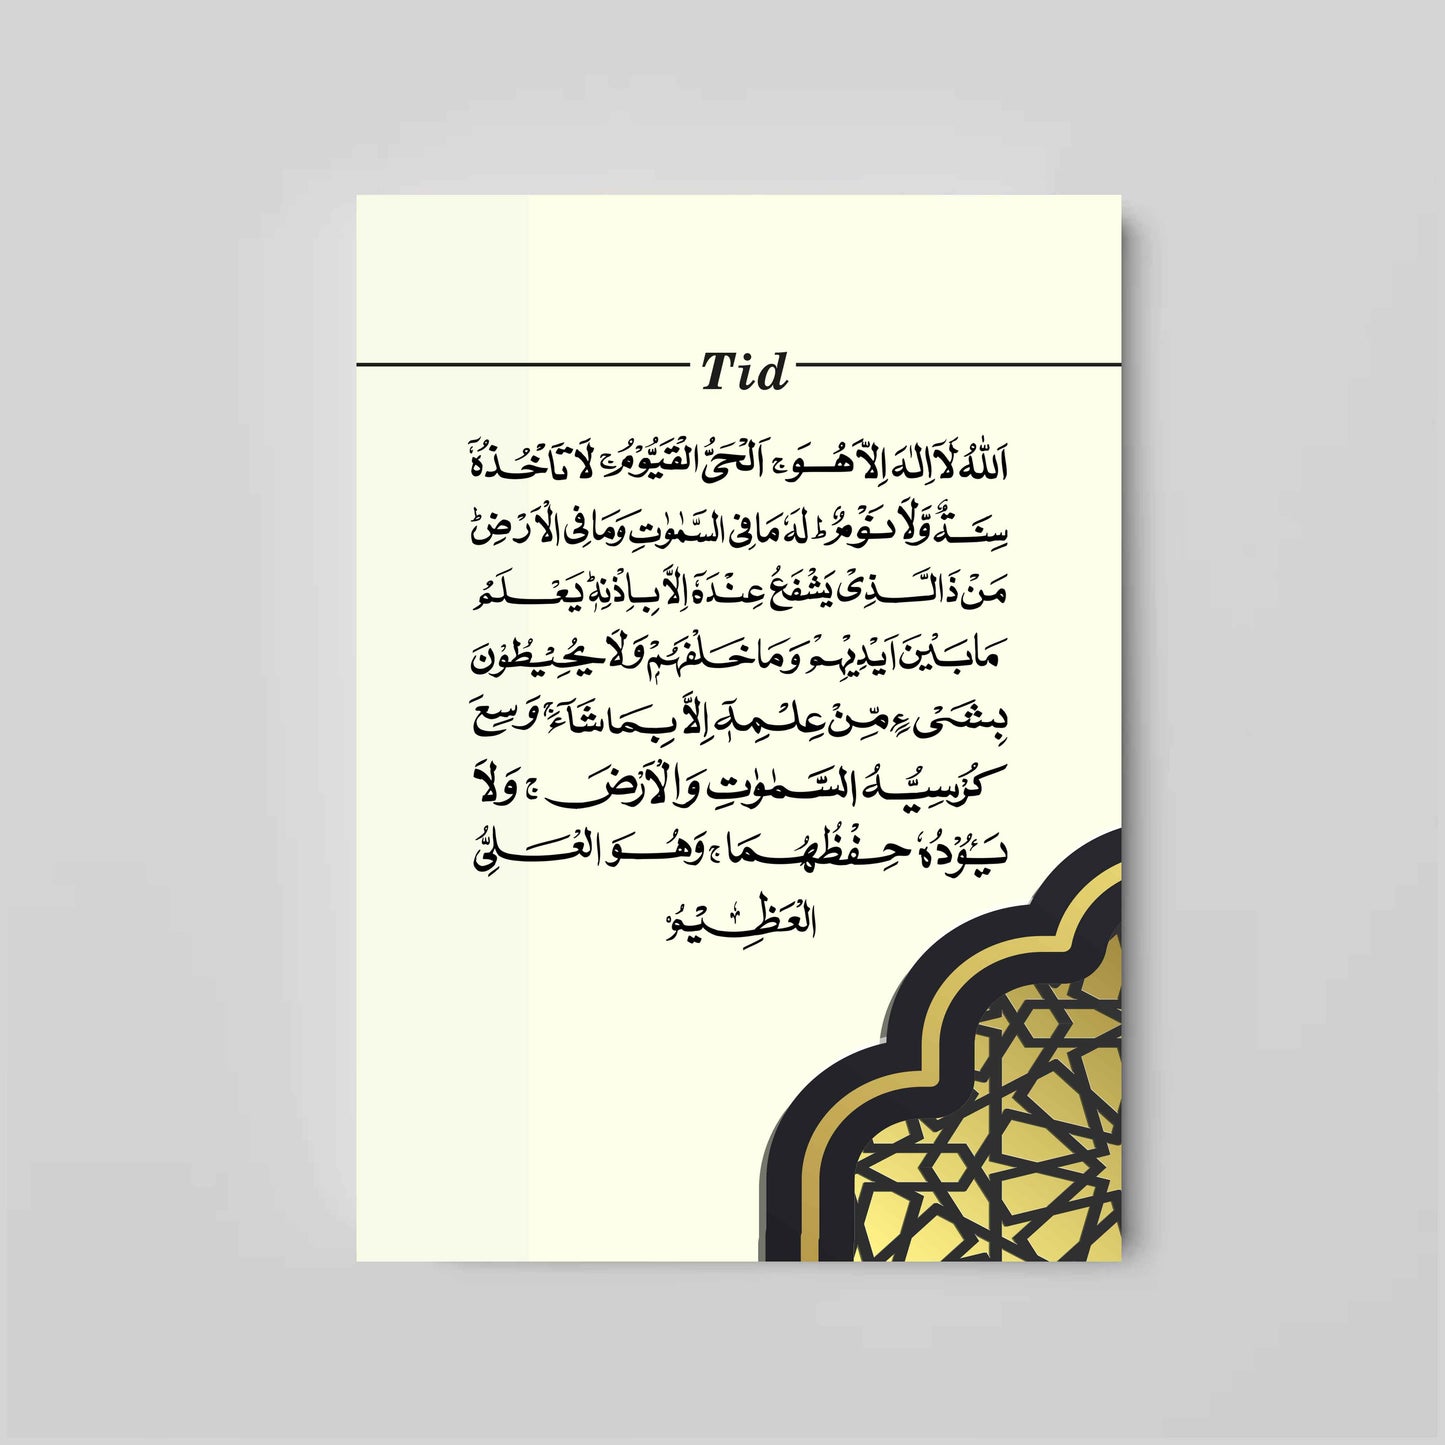 Tid
اَللّٰهُ لَآ اِلٰهَ اِلَّا هُوَۚ اَلْحَيُّ الْقَيُّوْمُۚ لَا تَأْخُذُهٗ
سِنَةٌ وَّلَا نَوْمٌۗ لَهٗ مَا فِى السَّمٰوٰتِ وَمَا فِى الْاَرْضِۗ
مَنْ ذَا الَّذِيْ يَشْفَعُ عِنْدَهٗٓ اِلَّا بِاِذْنِهٖۗ يَعْلَمُ
مَا بَيْنَ اَيْدِيْهِمْ وَمَا خَلْفَهُمْۚ وَلَا يُحِيْطُوْنَ
بِشَيْءٍ مِّنْ عِلْمِهٖٓ اِلَّا بِمَا شَاۤءَۚ وَسِعَ
كُرْسِيُّهُ السَّمٰوٰتِ وَالْاَرْضَۚ وَلَا
يَـُٔوْدُهٗ حِفْظُهُمَاۚ وَهُوَ الْعَلِيُّ
الْعَظِيْمُ